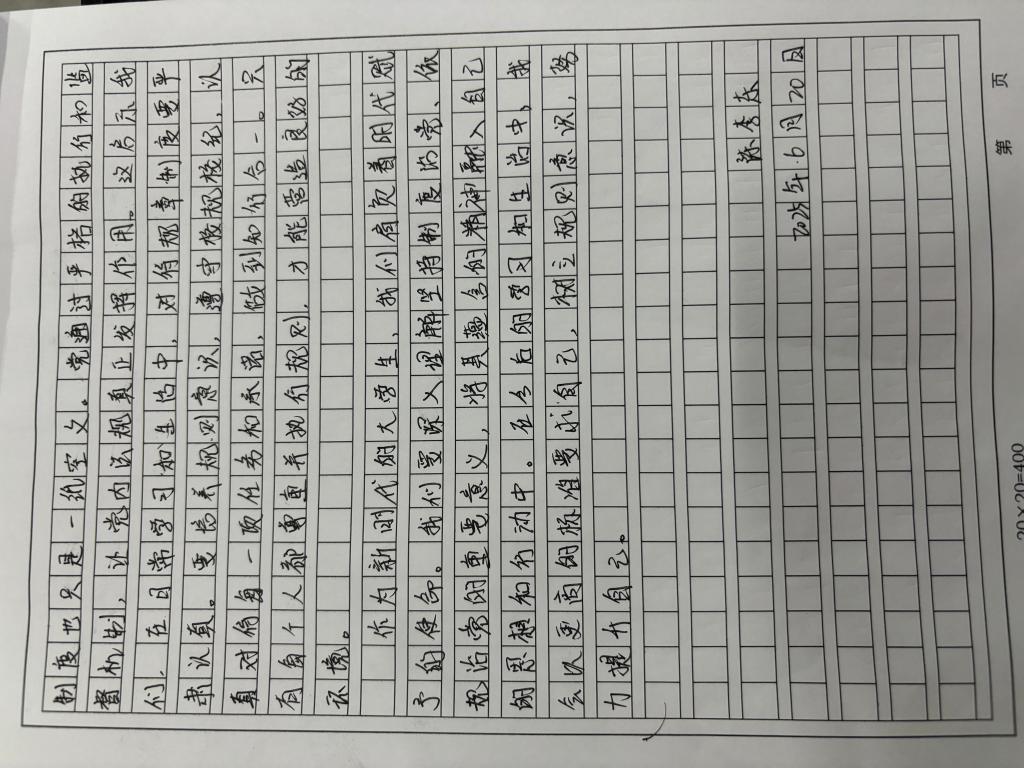 制度也只是一纸空文。党通过严格的执行和监
督机制，让党内法规真正发挥作用。这启示我
们，在日常学习和生活中，对待规章制度要严
肃认真。要培养规则意识，遵守校规校纪，认
真对待每一项任务和承诺，做到知行合一。只
有每个人都尊重并执行规则，才能营造良好的
环境。
作为新时代的大学生，我们肩负着时代赋
予的使命。我们要深入理解坚持制度治党、依
规治党的重要意义，将其蕴含的精神融入自己
的思想和行动中。在今后的学习和生活中，我
会以更高的标准要求自己，树立规则意识，努
力提升自己。
李东
2025年6月20日
第 页
20×20=400